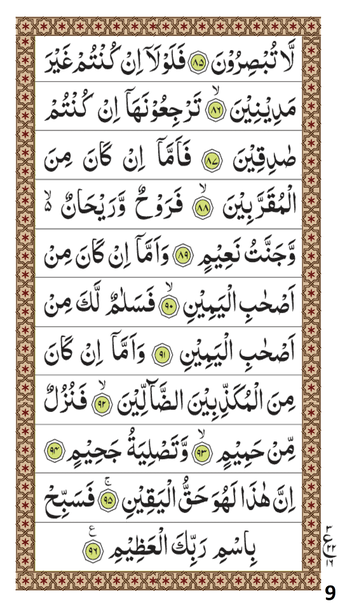 لَّا تُبْصِرُوْنَ ﴿۸۵﴾ فَلَوْلَاۤ اِنْ كُنْتُمْ غَيْرَ
مَدِيْنِيْنَ ۙ﴿۸۶﴾ تَرْجِعُوْنَهَاۤ اِنْ كُنْتُمْ
صٰدِقِيْنَ ﴿۸۷﴾ فَاَمَّاۤ اِنْ كَانَ مِنَ
الْمُقَرَّبِيْنَ ۙ﴿۸۸﴾ فَرَوْحٌ وَّرَيْحَانٌ ۙ۬
وَّجَنَّتُ نَعِيْمٍ ﴿۸۹﴾ وَاَمَّاۤ اِنْ كَانَ مِنْ
اَصْحٰبِ الْيَمِيْنِ ۙ﴿۹۰﴾ فَسَلٰمٌ لَّكَ مِنْ
اَصْحٰبِ الْيَمِيْنِ ﴿۹۱﴾ وَاَمَّاۤ اِنْ كَانَ
مِنَ الْمُكَذِّبِيْنَ الضَّآلِّيْنَ ۙ﴿۹۲﴾ فَنُزُلٌ
مِّنْ حَمِيْمٍ ۙ﴿۹۳﴾ وَّتَصْلِيَةُ جَحِيْمٍ ﴿۹۴﴾
اِنَّ هٰذَا لَهُوَ حَقُّ الْيَقِيْنِ ۚ﴿۹۵﴾ فَسَبِّحْ
بِاسْمِ رَبِّكَ الْعَظِيْمِ ﴿۹۶﴾ ع
۳
ع
۲۲
۱۶
9